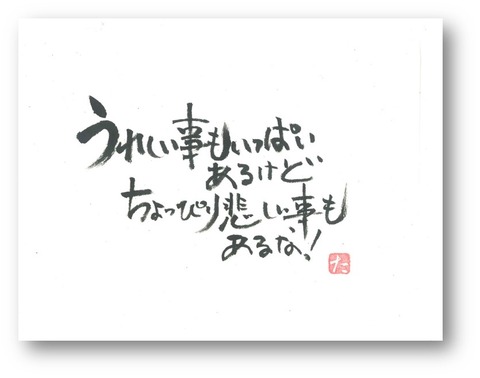 うれしい事もいっぱい
あるけど
ちょっぴり悲しい事も
あるな!
た